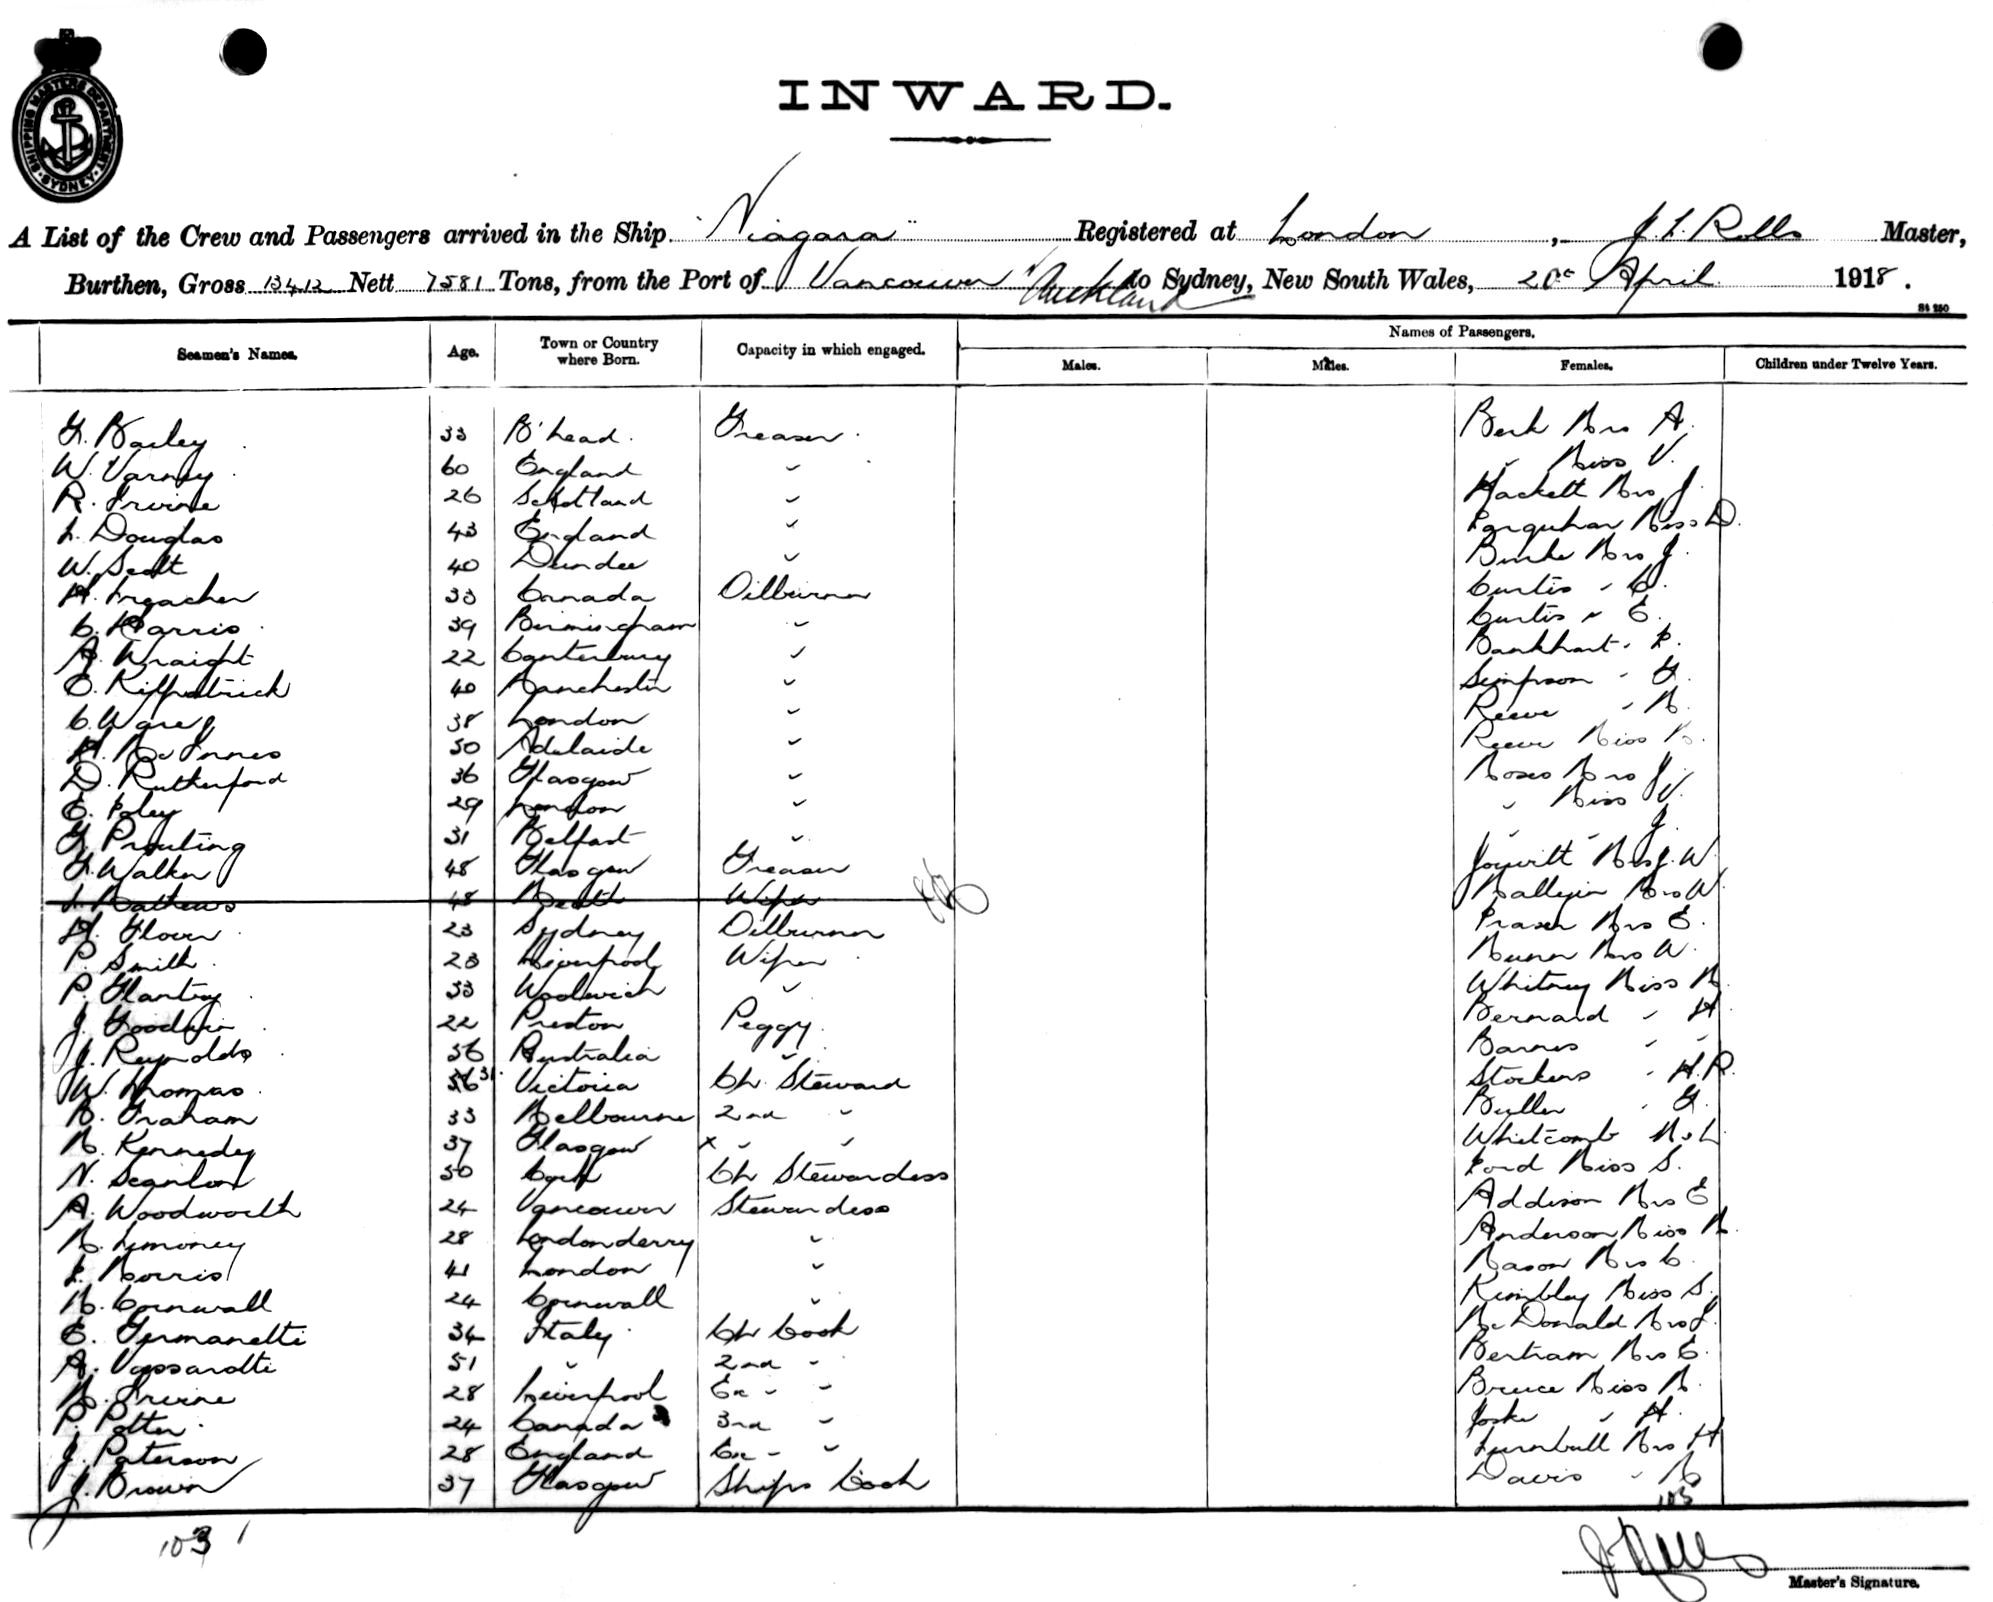 SHIPPING MASTERS DEPARTMENT SYDNEY
INWARD.
A List of the Crew and Passengers arrived in the Ship "Niagara" Registered at London, J. L. Rolls Master,
Burthen, Gross 13412 Nett 7581 Tons, from the Port of Vancouver Auckland to Sydney, New South Wales, 20 April 1918.
Names of Passengers.
Seamen's Names. Age. Town or Country where Born. Capacity in which engaged. Males. Males. Females. Children under Twelve Years.
Bailey 33 B'head. Greaser. Berk Mrs A.
W. Varney 60 England " " Miss V.
R. Irvine 26 Scotland " Hackett Mrs J.
L. Douglas 43 England " Farquhar Miss D.
W. Scott 40 Dundee " Burke Mrs J.
33 Canada Oilburner Curtis " C.
C. Harris 39 Birmingham " Curtis " E.
A. Wraight 22 Canterbury " Bankhart " F.
E. Kilpatrick 40 Manchester " Simpson " G.
C. Ware 38 London " Reeve " M.
H. McInnes 50 Adelaide " Reeve Miss M.
D. Rutherford 36 Glasgow " Moses Mrs J.
E. Foley 29 London " " Miss V.
G. Prouting 31 Belfast " " " J.
G. Walker 48 Glasgow Greaser Jowitt Mrs J. W.
L. Mathews 48 Wiper Mrs W.
H. Glover 23 Sydney Oilburner Fraser Mrs E.
P. Smith 23 Liverpool Wiper Mrs W.
P. 33 Woolwich " Whitney Miss M.
J. Goodwin 22 Preston Peggy. Bernard " H.
J. Reynolds 56 Australia " Barnes " "
W. Thomas 31 Victoria Ch. Steward Stockens " H. R.
M. Graham 33 Melbourne 2nd " Buller " G.
M. Kennedy 37 Glasgow x " " Whitcomb Mrs L
N. Scanlon 50 Cork Ch Stewardess Ford Miss S.
A. Woodworth 24 Vancouver Stewardess Addison Mrs E
M. Limoney 28 Londonderry " Anderson Miss M.
L. Morris 41 London " Mason Mrs C.
M. Cornwall 24 Cornwall " Kimbley Miss S.
E. Germanetti 34 Italy. Ch Cook McDonald Mrs J.
A. Vassardtti 51 " 2nd " Bertram Mrs E.
M. Irvine 28 Liverpool Ex " " Bruce Miss M.
P. Potter 24 Canada 3rd " Joske " H.
J. Paterson 28 England Ex " " Turnbull Mrs H
J. Brown 37 Glasgow Ships Cook Davis " M
103
103
Master's Signature.